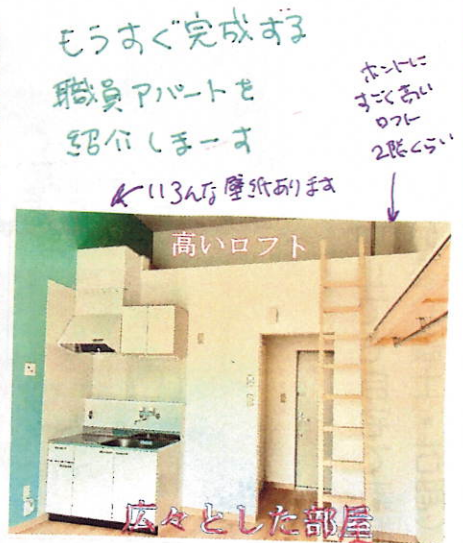 もうすぐ完成する
職員アパートを
紹介しまーす
ホントに
すごく高い
ロフト
2階くらい
いろんな壁紙あります
高いロフト
広々とした部屋